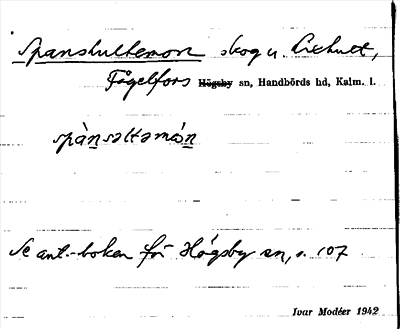 Spanshultemon skog u. Lixhult,
Fågelfors Högsby sn, Handbörds hd, Kalm. l.
spànsəltəmón
Se ant.-boken för Högsby sn, s. 107
Ivar Modéer 1942